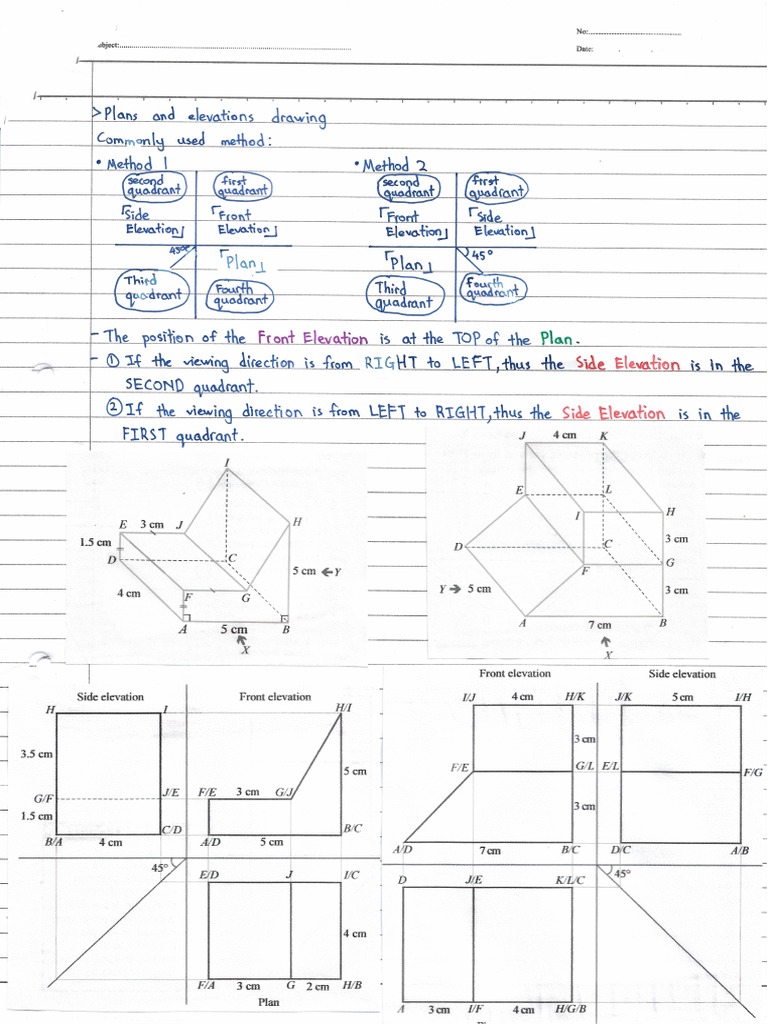 No:
Date:
ubject:
>Plans and elevations drawing
Commonly used method:
• Method 1
second quadrant
first quadrant
「Side Elevation」
「Front Elevation」
45°
「Plan」
Third quadrant
Fourth quadrant
• Method 2
second quadrant
first quadrant
「Front Elevation」
「Side Elevation」
45°
「Plan」
Third quadrant
Fourth quadrant
- The position of the Front Elevation is at the TOP of the Plan.
- ① If the viewing direction is from RIGHT to LEFT, thus the Side Elevation is in the
SECOND quadrant.
② If the viewing direction is from LEFT to RIGHT, thus the Side Elevation is in the
FIRST quadrant.
I
E 3 cm J
H
1.5 cm
D
C
5 cm ←Y
4 cm
F
G
A
5 cm
B
X
J 4 cm K
E
L
I
H
D
C
3 cm
F
G
Y → 5 cm
3 cm
A
7 cm
B
X
Side elevation
H
I
3.5 cm
G/F
J/E
1.5 cm
C/D
B/A
4 cm
Front elevation
H/I
F/E
3 cm
G/J
5 cm
B/C
A/D
5 cm
45°
E/D
J
I/C
4 cm
F/A
3 cm
G
2 cm
H/B
Plan
Front elevation
I/J
4 cm
H/K
3 cm
F/E
G/L
3 cm
A/D
7 cm
B/C
Side elevation
J/K
5 cm
I/H
E/L
F/G
D/C
A/B
45°
D
J/E
K/L/C
A
3 cm
I/F
4 cm
H/G/B